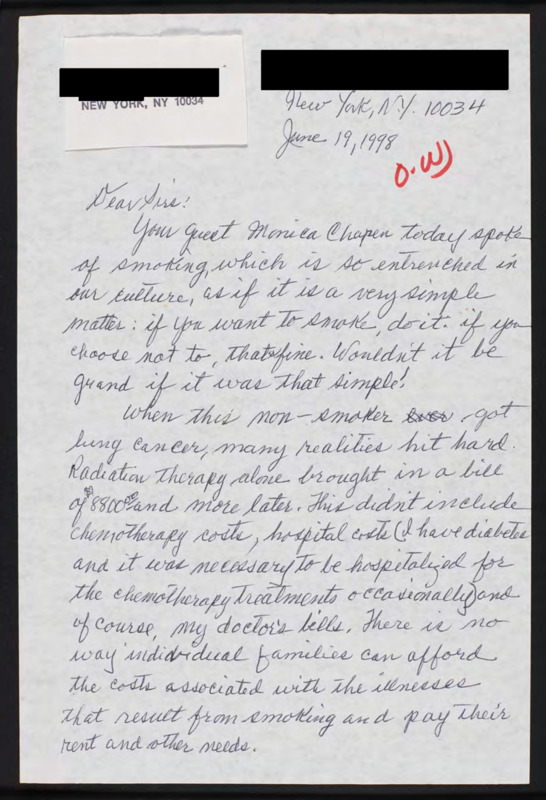 NEW YORK, NY 10034
New York, N.Y. 10034
June 19, 1998
O.W)
Dear Sirs:
Your guest Monica Chapen today spoke
of smoking, which is so entrenched in
our culture, as if it is a very simple
matter: if you want to smoke, do it. if you
choose not to, that's fine. Wouldn't it be
grand if it was that simple!
When this non-smoker got
lung cancer, many realities hit hard.
Radiation therapy alone brought in a bill
of $8800 and more later. This didn't include
chemotherapy costs, hospital costs (I have diabetes
and it was necessary to be hospitalized for
the chemotherapy treatments occasionally) and
of course, my doctor's bills. There is no
way individual families can afford
the costs associated with the illnesses
that result from smoking and pay their
rent and other needs.